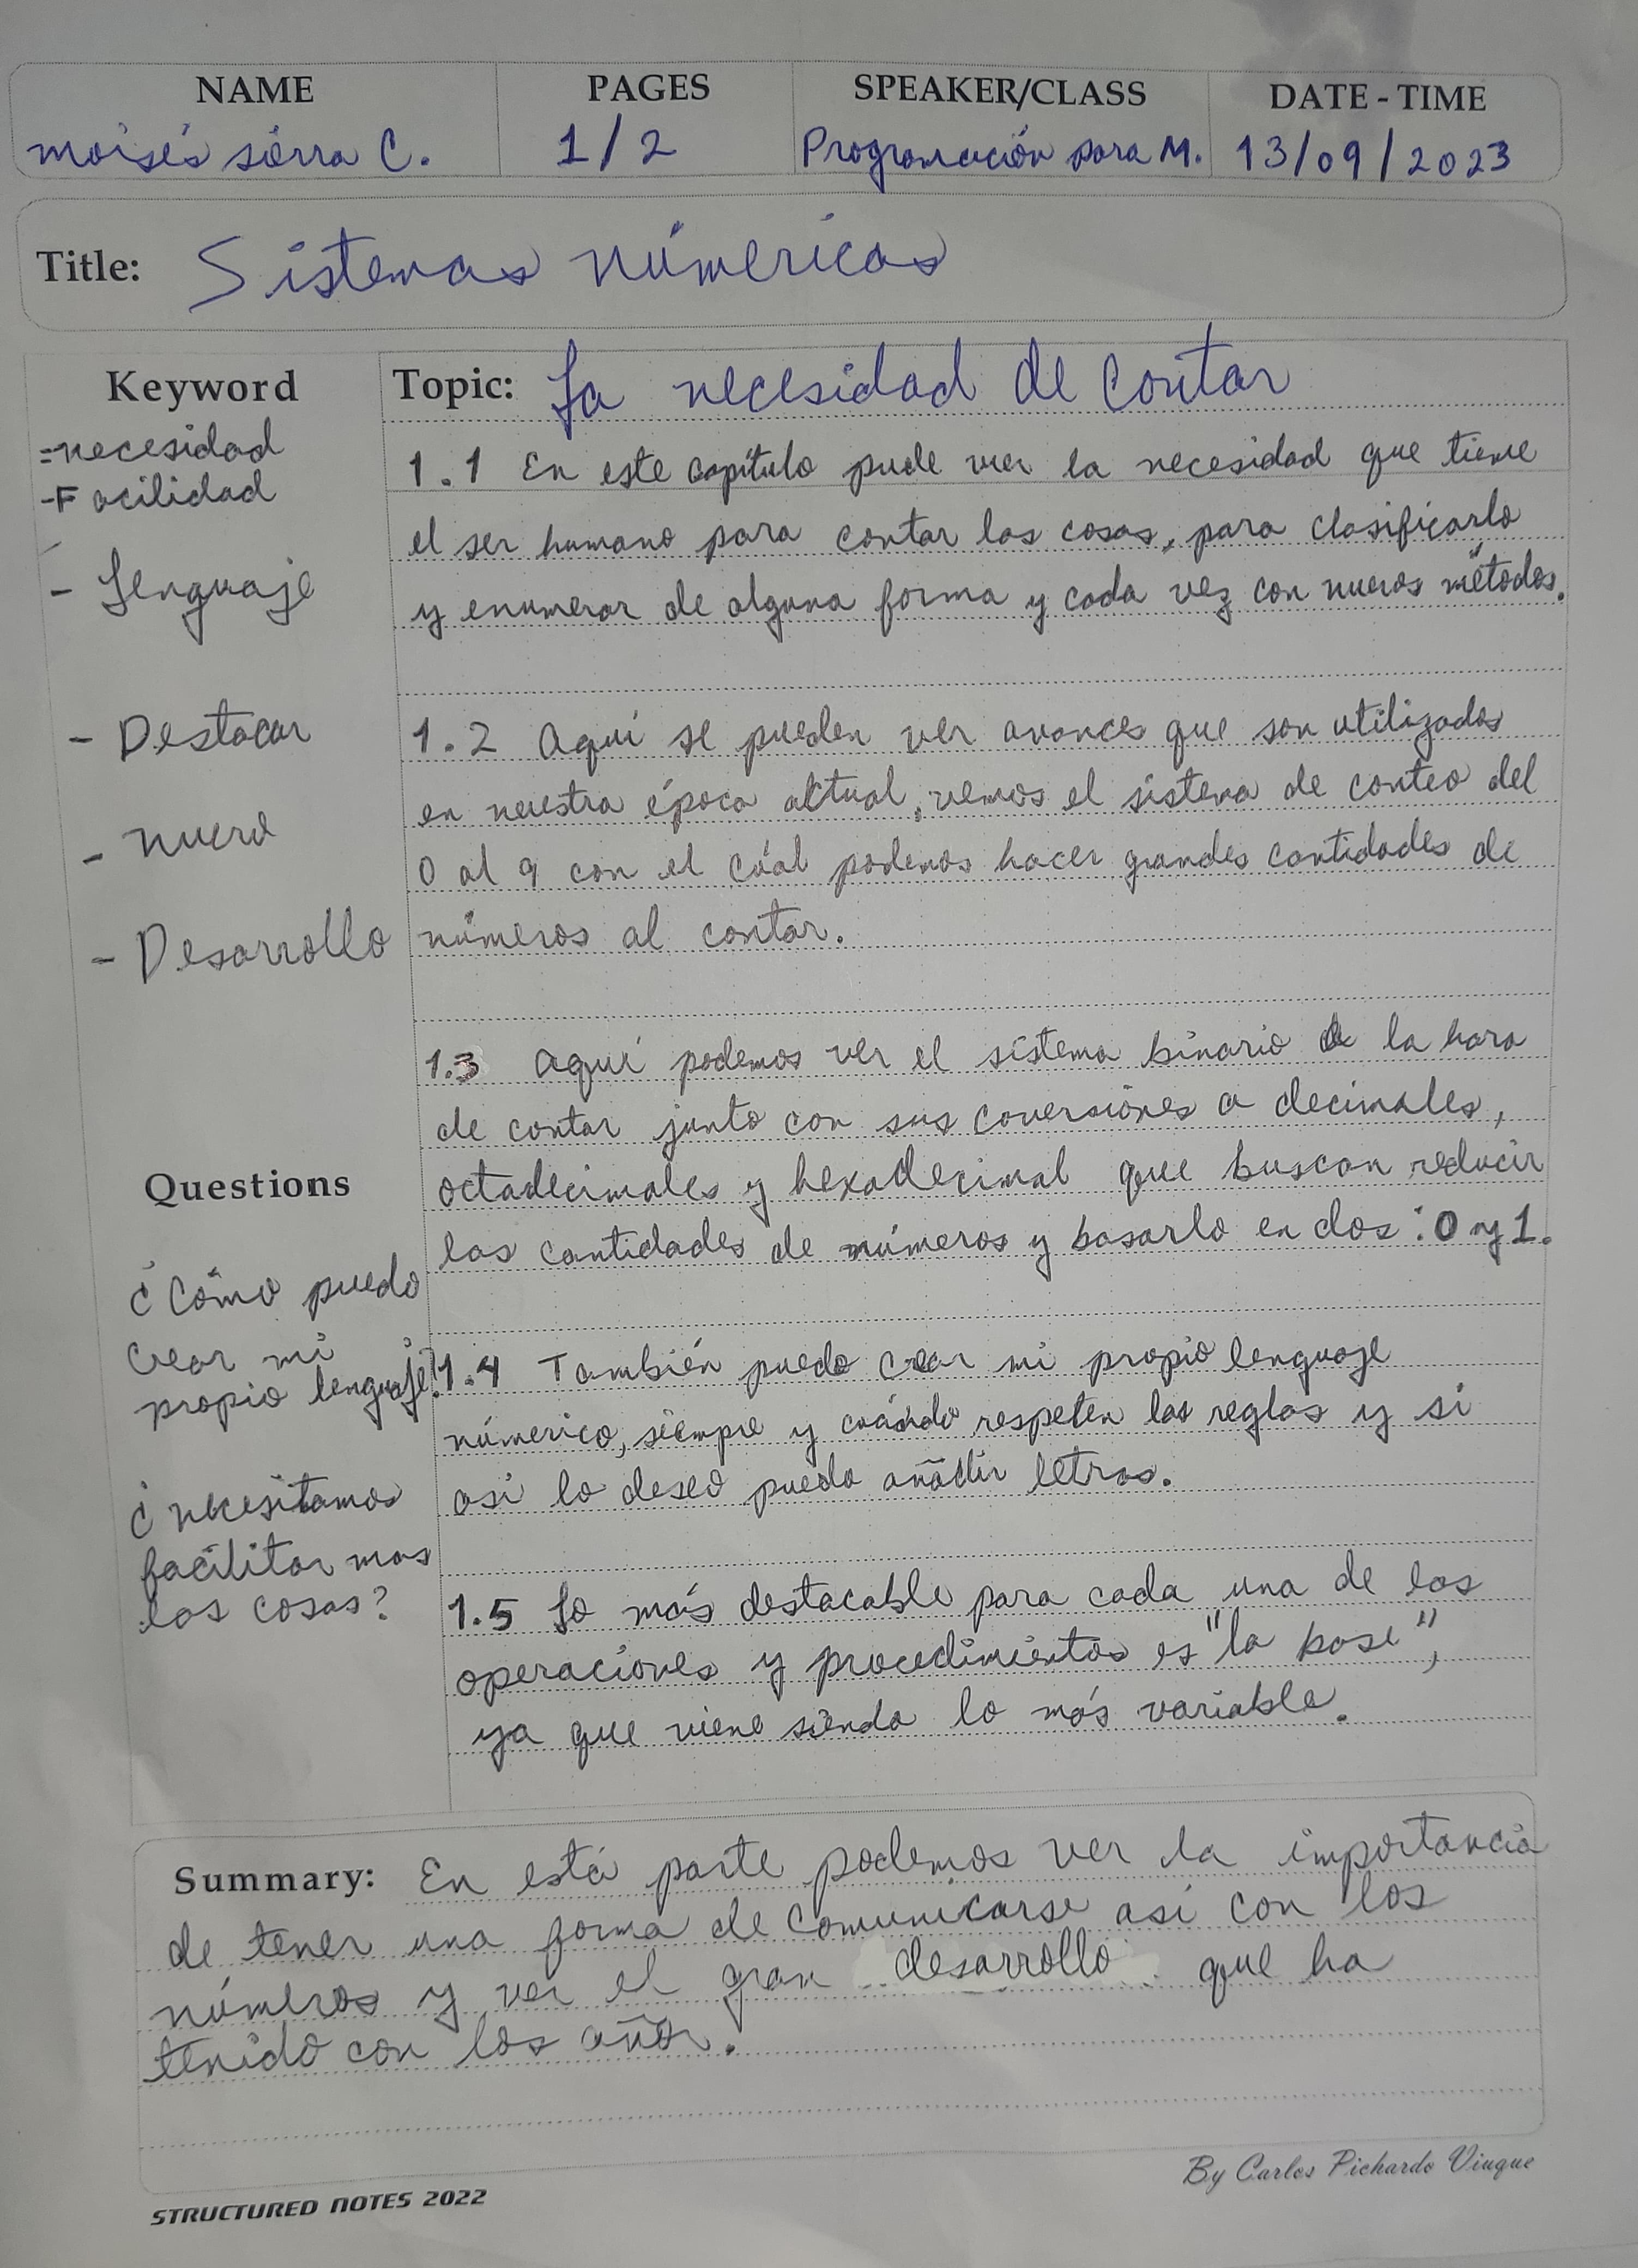 NAME PAGES SPEAKER/CLASS DATE - TIME
moisés sierra C. 1/2 Programación para M. 13/09/2023
Title: Sistemas númericos
Keyword
=necesidad
-Facilidad
- Lenguaje
- Destacar
- nuevo
- Desarrollo
Topic: La necesidad de contar
1.1 En este capítulo pude ver la necesidad que tiene
el ser humano para contar las cosas, para clasificarlo
y enumerar de alguna forma y cada vez con nuevos métodos.
1.2 Aquí se pueden ver avances que son utilizados
en neustra época actual, vemos el sistema de conteo del
0 al 9 con el cúal podemos hacer grandes cantidades de
números al contar.
1.3 Aquí podemos ver el sistema binario a la hora
de contar junto con sus coversiones a decimales,
octadecimales y hexadecimal que buscan reducir
las cantidades de números y basarlo en dos: 0 y 1.
1.4 También puedo crear mi propio lenguaje
númerico, siempre y cuándo respeten las reglas y si
asi lo deseo puedo añadir letras.
1.5 Lo más destacable para cada una de las
operaciones y procedimientos es "la base",
ya que viene siendo lo más variable.
Questions
¿Cómo puedo
crear mi
propio lenguaje?
¿necesitamos
facilitar mas
las cosas?
Summary: En está parte podemos ver la importancia
de tener una forma de comunicarse asi con los
números y ver el gran desarrollo que ha
tenido con los años.
By Carlos Pichardo Viuque
STRUCTURED NOTES 2022